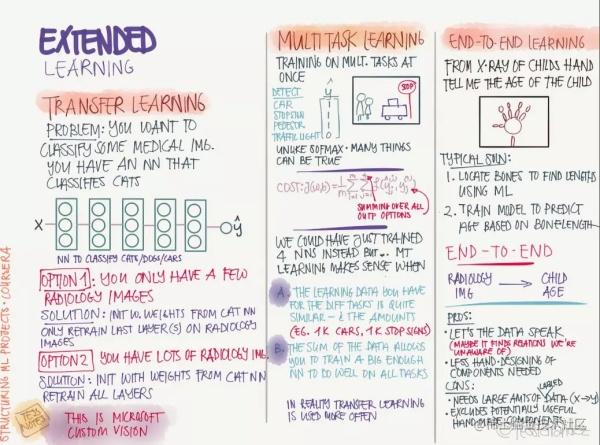 EXTENDED
LEARNING
TRANSFER LEARNING
PROBLEM: YOU WANT TO
CLASSIFY SOME MEDICAL IMG.
YOU HAVE AN NN THAT
CLASSIFIES CATS
X
ŷ
NN TO CLASSIFY CATS/DOGS/CARS
OPTION 1: YOU ONLY HAVE A FEW
RADIOLOGY IMAGES
SOLUTION: INIT W. WEIGHTS FROM CAT NN
ONLY RETRAIN LAST LAYER(S) ON RADIOLOGY
IMAGES
OPTION 2 YOU HAVE LOTS OF RADIOLOGY IMG
SOLUTION: INIT WITH WEIGHTS FROM CAT NN
RETRAIN ALL LAYERS
THIS IS MICROSOFT
CUSTOM VISION
STRUCTURING ML PROJECTS · COURSERA
TESS
NOTES
MULTI TASK LEARNING
TRAINING ON MULT. TASKS AT
ONCE
DETECT
CAR
STOPSIGN
PEDESTR
TRAFFIC LIGHT
ŷ
STOP
UNLIKE SOFMAX · MANY THINGS
CAN BE TRUE
COST:
SUMMING OVER ALL
OUTP OPTIONS
WE COULD HAVE JUST TRAINED
4 NNS INSTEAD BUT... MT
LEARNING MAKES SENSE WHEN
A. THE LEARNING DATA YOU HAVE
FOR THE DIFF TASKS IS QUITE
SIMILAR - & THE AMOUNTS
(EG. 1K CARS, 1K STOP SIGNS)
B. THE SUM OF THE DATA ALLOWS
YOU TO TRAIN A BIG ENOUGH
NN TO DO WELL ON ALL TASKS
IN REALITY TRANSFER LEARNING
IS USED MORE OFTEN
END-TO-END LEARNING
FROM X-RAY OF CHILDS HAND
TELL ME THE AGE OF THE CHILD
TYPICAL SOLN:
1. LOCATE BONES TO FIND LENGTHS
USING ML
2. TRAIN MODEL TO PREDICT
AGE BASED ON BONE LENGTH
END-TO-END
RADIOLOGY
IMG
CHILD
AGE
PROS:
• LET'S THE DATA SPEAK
(MAYBE IT FINDS RELATIONS WE'RE
UNAWARE OF)
• LESS HAND-DESIGNING OF
COMPONENTS NEEDED
CONS:
LABELED
• NEEDS LARGE AMTS OF DATA (X→Y)
• EXCLUDES POTENTIALLY USEFUL
HAND-MADE COMPONENTS